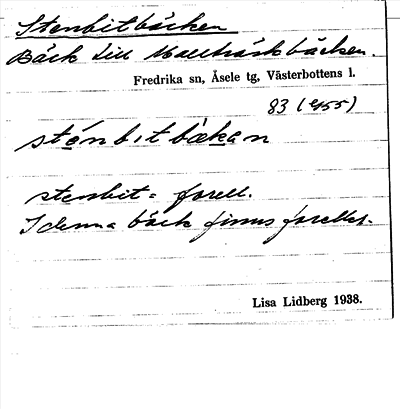 Stenbitbäcken
Bäck till Malträskbäcken.
Fredrika sn, Åsele tg, Västerbottens l.
93
sténbitbækan
stenbit = forell.
I denna bäck finns foreller.
Lisa Lidberg 1938.